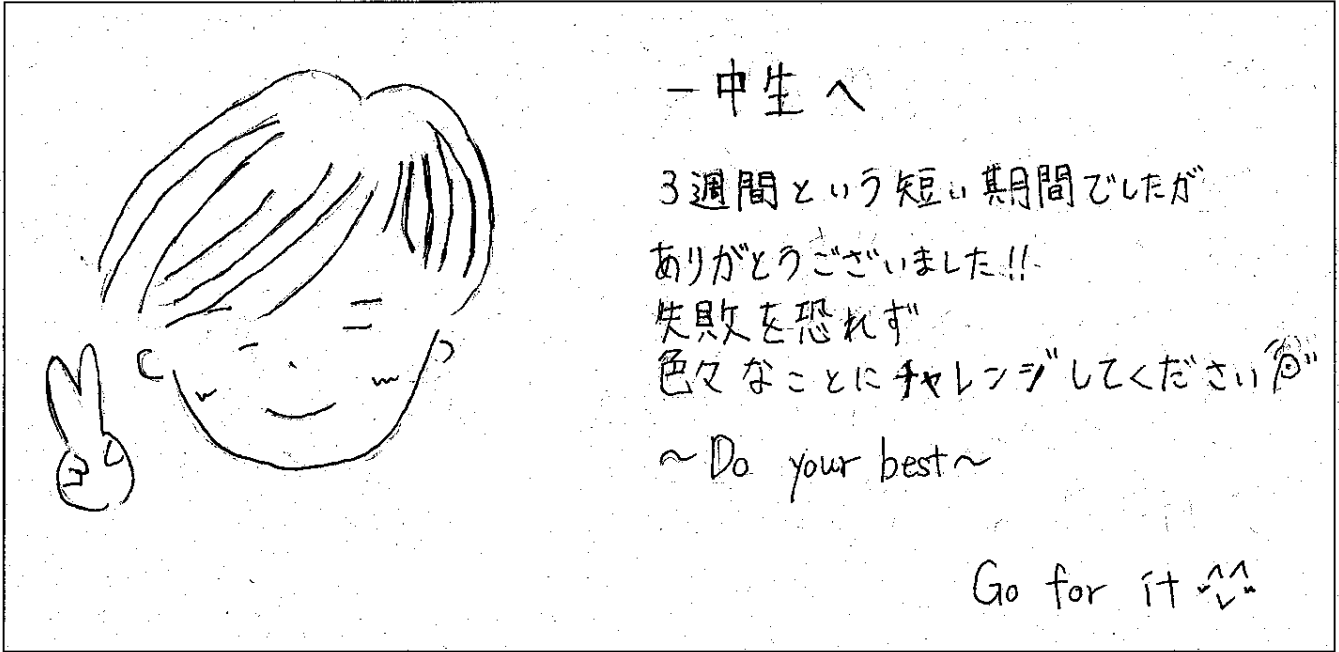 一中生へ
3週間という短い期間でしたが
ありがとうございました!!
失敗を恐れず
色々なことにチャレンジしてください
~Do your best~
Go for it